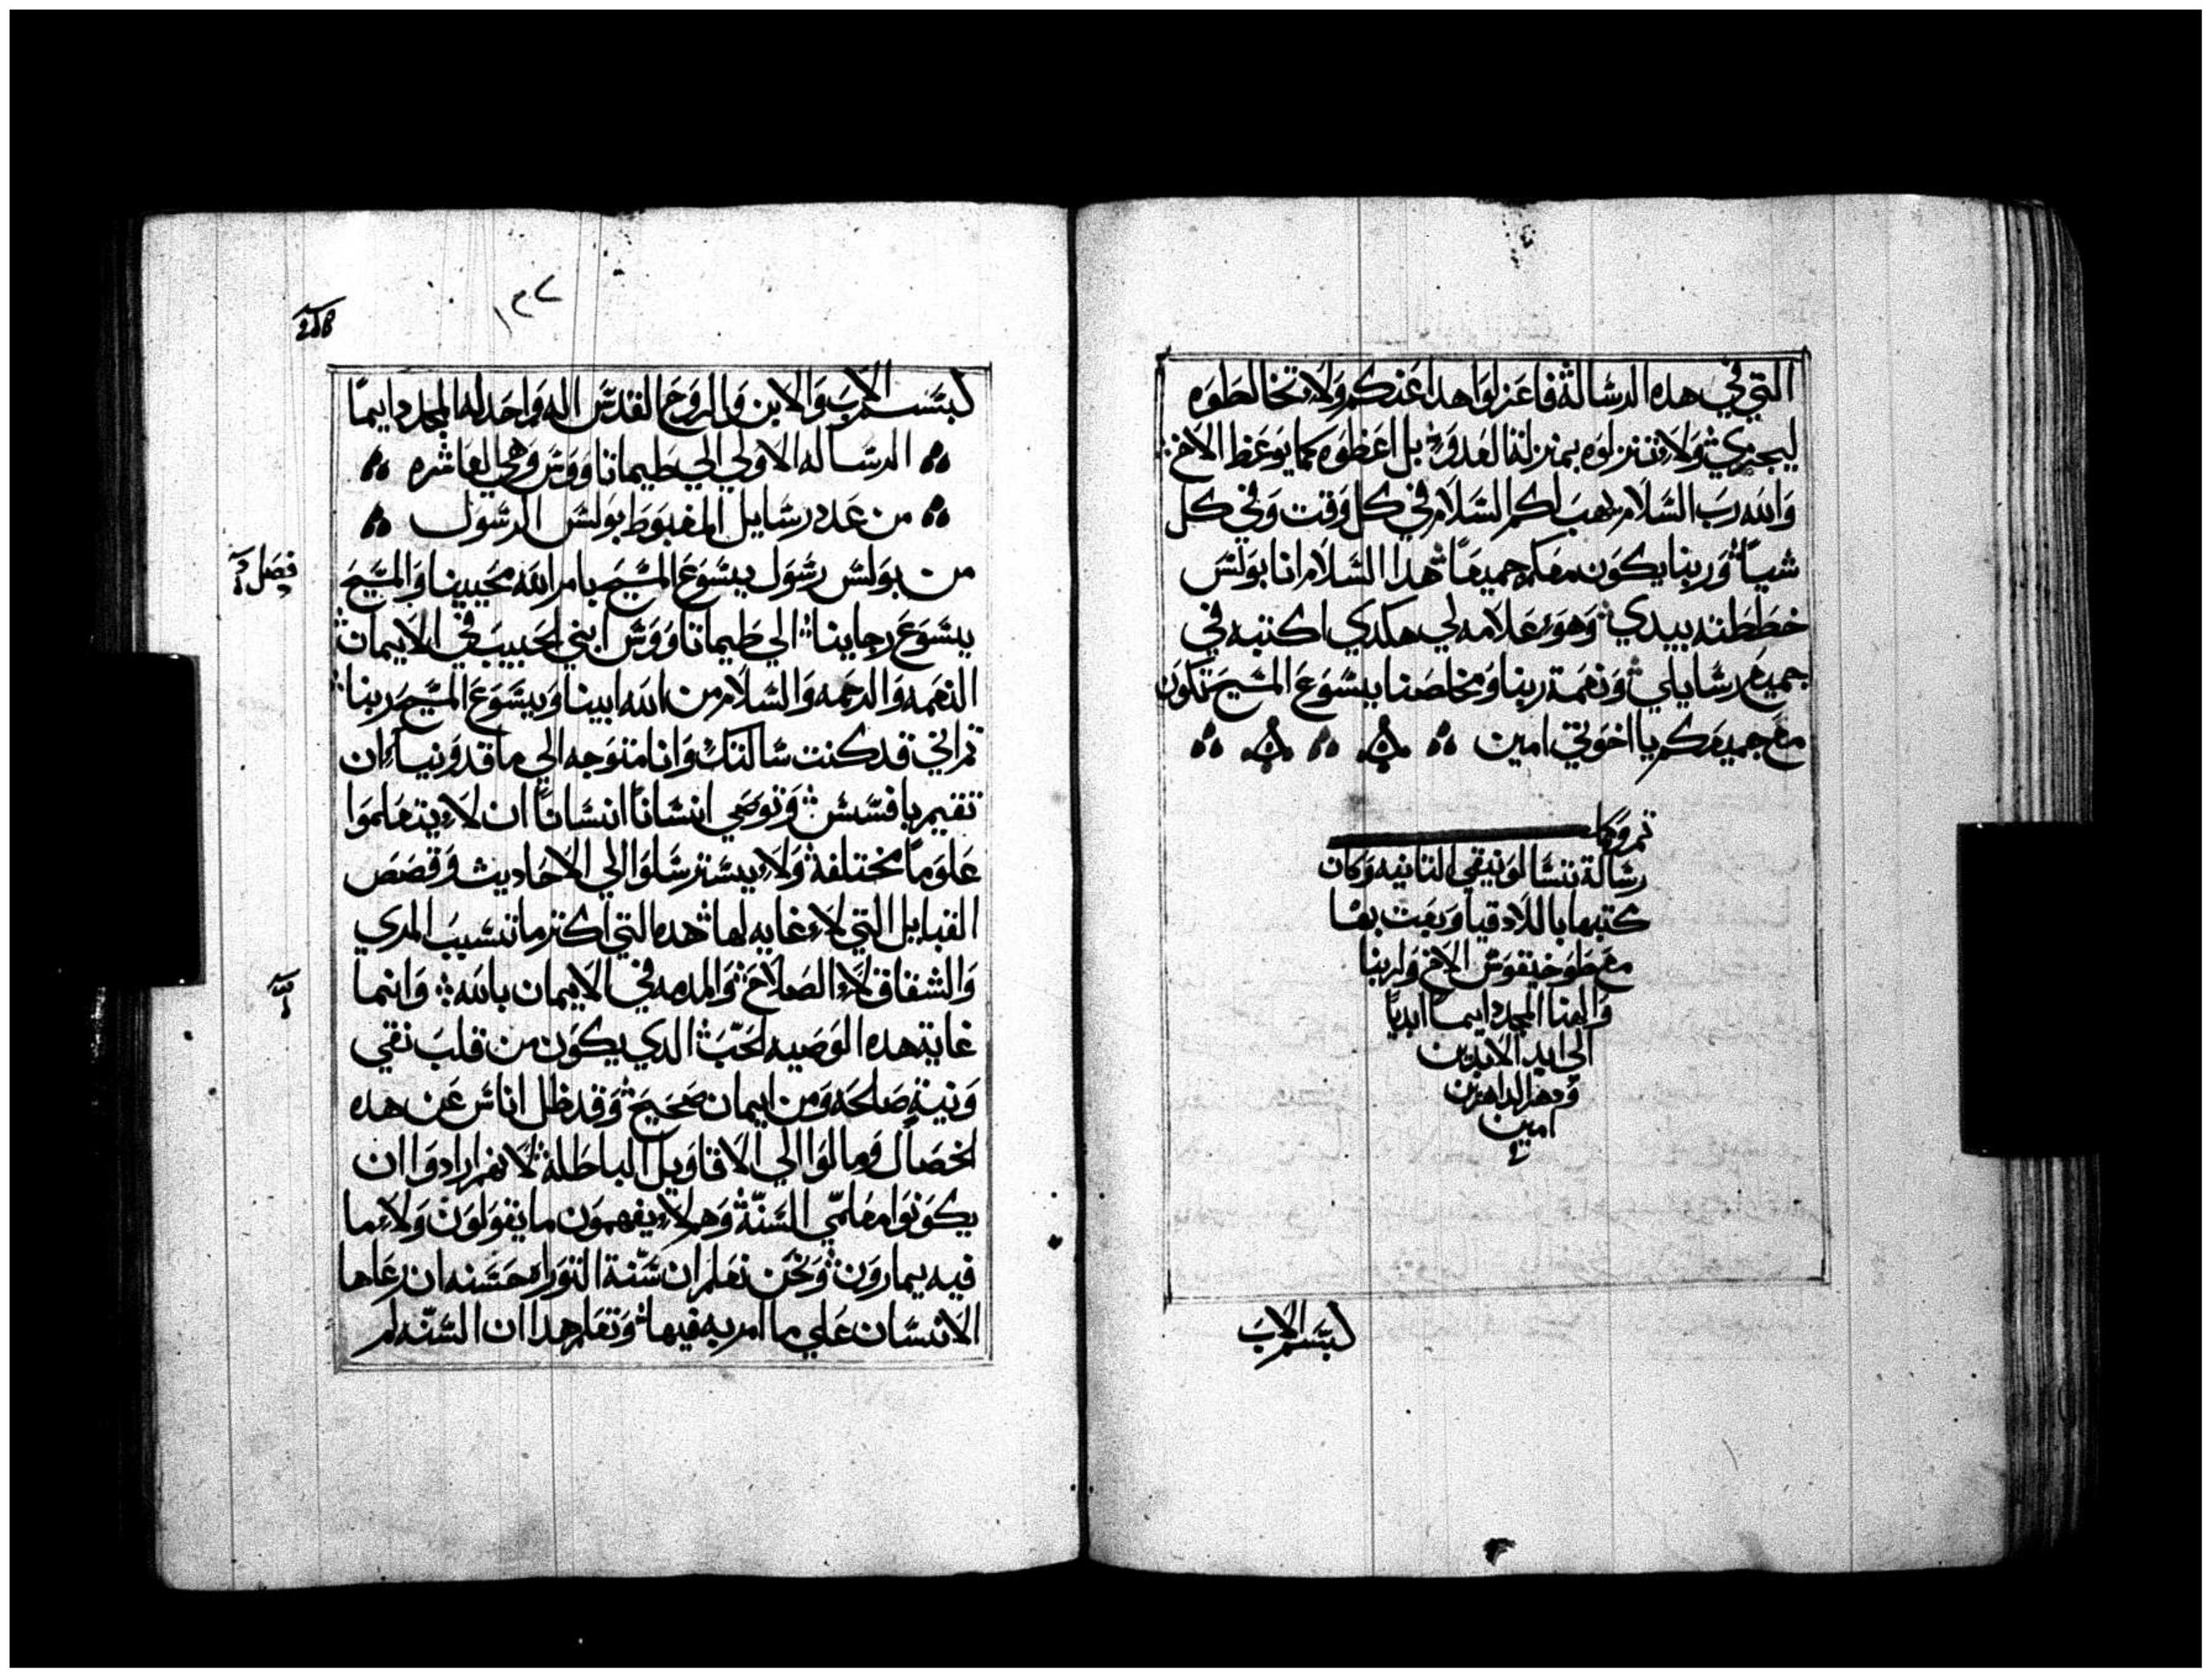 التي في هده الرسالة فاعزلوا هدا عنكم ولا تخالطوه
ليجزي ولا تنزلوه بمنزلة العدو بل اعظوه كما يوعظ الاخ
والله رب السلام يهب لكم السلام في كل وقت وفي كل
شيا وربنا يكون معكم جميعا هدا السلام انا بولس
خططته بيدي وهو علامه لي هكدي اكتبه في
جميع رسايلي ونعمة ربنا ومخلصنا يسوع المسيح تكون
مع جميعكم يا اخوتي امين
تم وكا
رسالة تسالونيقي التانيه وكان
كتبها باللادقيا وبعت بها
مع طوخيقوس الاخ ولربنا
والهنا المجد دايما ابديا
الي ابد الابدين
ودهر الداهرين
امين
بسم الاب
١٣٧
بسم الاب والابن والروح القدس اله واحد له المجد دايما
الرساله الاولي الي طيماتاووس وهي العاشره
من عدد رسايل المغبوط بولس الرسول
فصل
من بولس رسول يسوع المسيح بامر الله محيينا والمسيح
يسوع رجاينا الي طيماتاووس ابني الحبيب في الايمان
النعمه والرحمه والسلام من الله ابينا ويسوع المسيح ربنا
تم اني قد كنت سالتك وانا متوجه الي ماقدونيا ان
تقيم بافسس وتوصي انسانا انسانا ان لا يتعلموا
علوما مختلفة ولا يسترسلوا الي الاحاديت وقصص
القبايل التي لا غايه لها هده التي اكتر ما تسبب المري
والشقاق لا الصلاح والمدمه في الايمان بالله وانما
غاية هده الوصيه الحب الدي يكون من قلب نقي
ونية صالحه ومن ايمان صحيح وقد ظل اناس عن هده
الخصال ومالوا الي الاقاويل الباطلة لانهم ارادوا ان
يكونوا معلمي السنة وهم لا يفهمون ما يقولون ولا ما
فيه يمارون ونحن نعلم ان سنة التوراه حسنه ان رعاها
الانسان علي ما امر به فيها وتعلم هدا ان السنه لم